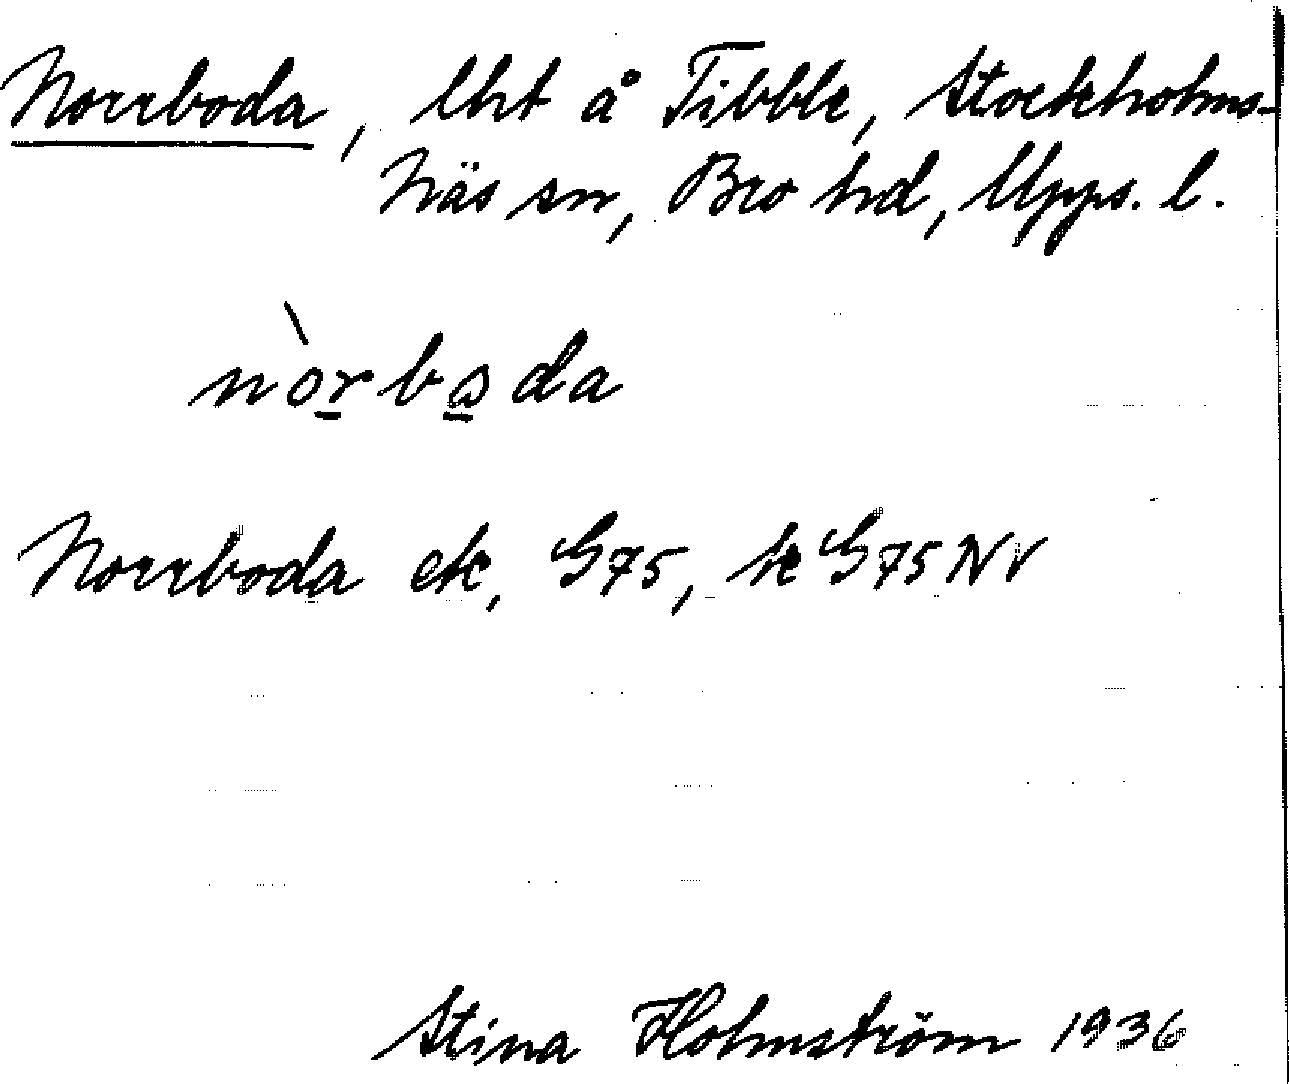 Norrboda, lht å Tibble, Stockholms-
Näs sn, Bro hd, Upps. l.
nòrboda
Norrboda ek, G75, k G75 NV
Stina Holmström 1936